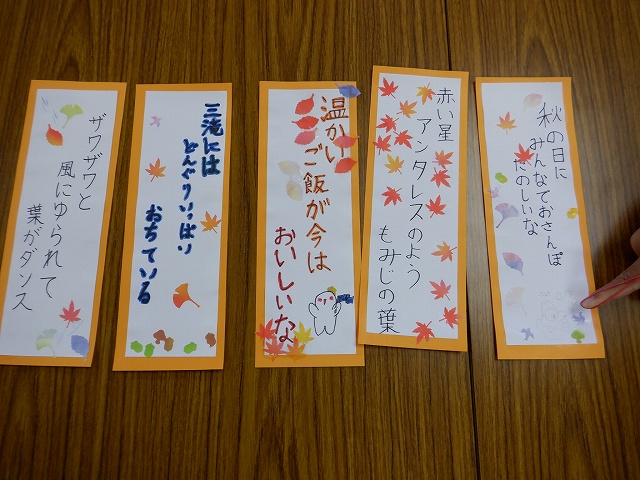 秋の日に
みんなでおさんぽ
たのしいな
赤い星
アンタレスのよう
もみじの葉
温かい
ご飯が今は
おいしいな
三滝には
どんぐりいっぱい
おちている
ザワザワと
風にゆられて
葉がダンス